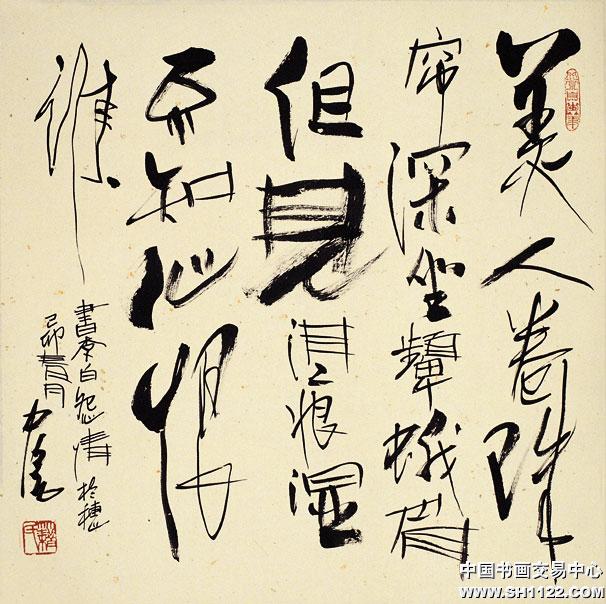 美人卷珠
帘深坐顰蛾眉
但見泪痕湿
不知心恨
誰
書李白怨情於穗
己卯春月
中国书画交易中心
WWW.SH1122.COM